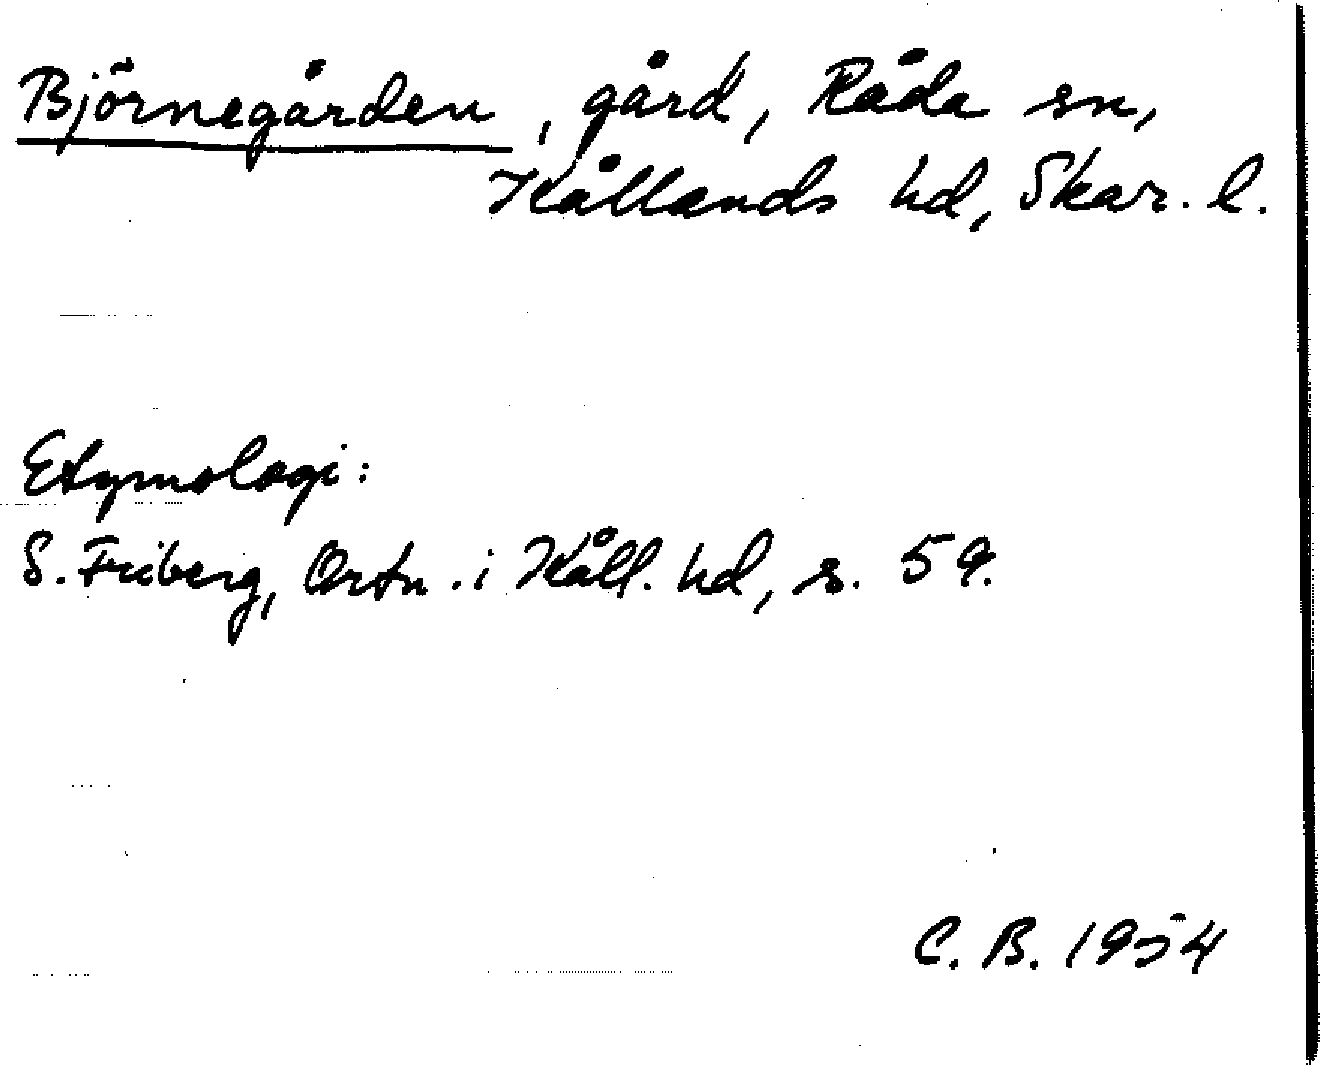 Björnegården, gård, Råda sn,
Kållands hd, Skar. l.
Etymologi:
S. Friberg, Ortn. i Kåll. hd, s. 59.
C. B. 1954